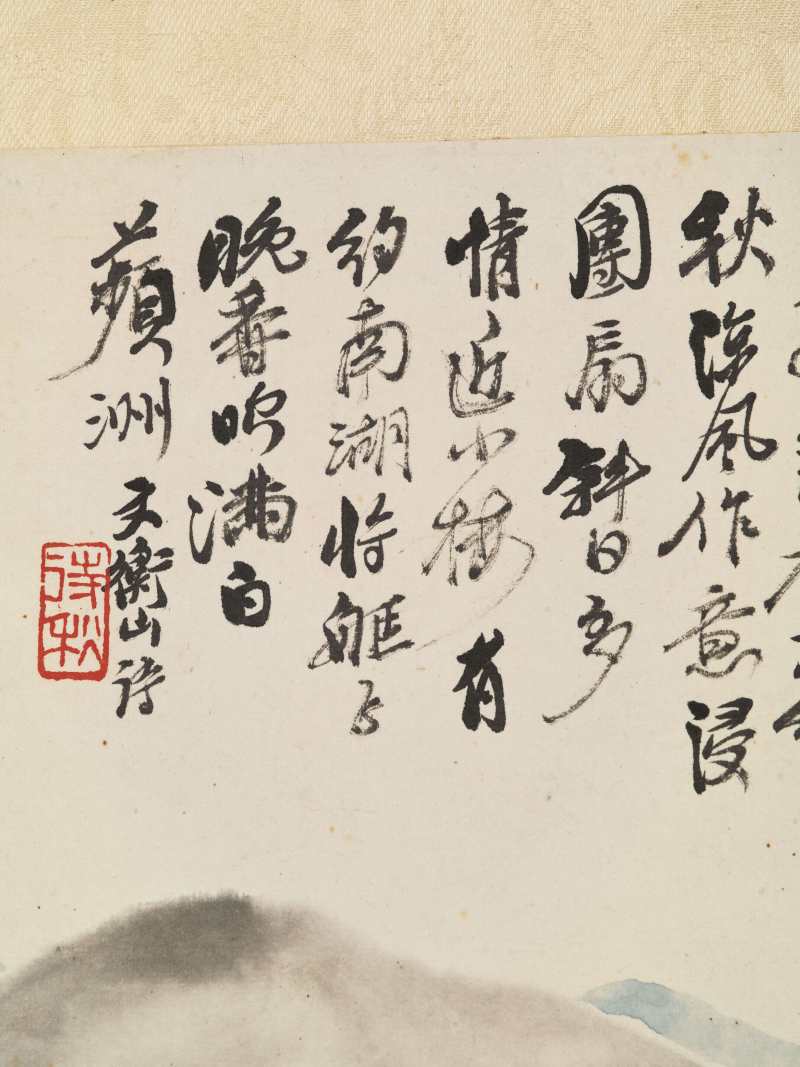 秋涼風作意浸
團扇斜日多
情近小樓有
約南湖将艇子
晚香吹满白
蘋洲 文衡山詩
待秋